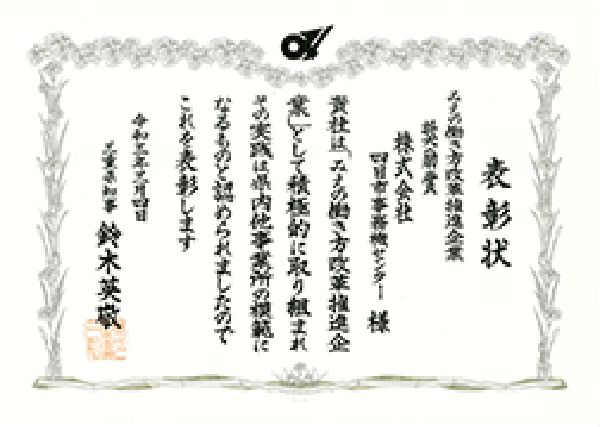 表彰状
みえの働き方改革推進企業
奨励賞
株式会社
四日市事務機センター 様
貴社は「みえの働き方改革推進企
業」として積極的に取り組まれ
その実践は県内他事業所の模範に
なるものと認められましたので
これを表彰します
三重県知事 鈴木英敬